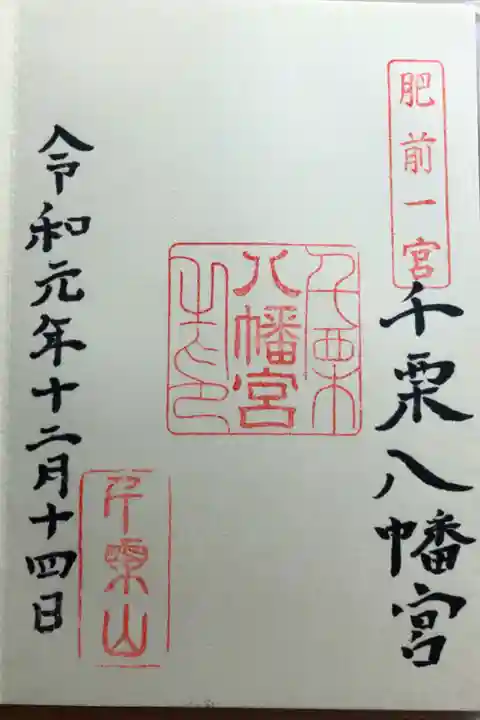 肥前一宮
千栗八幡宮
千栗
八幡宮
千栗山
令和元年十二月十四日